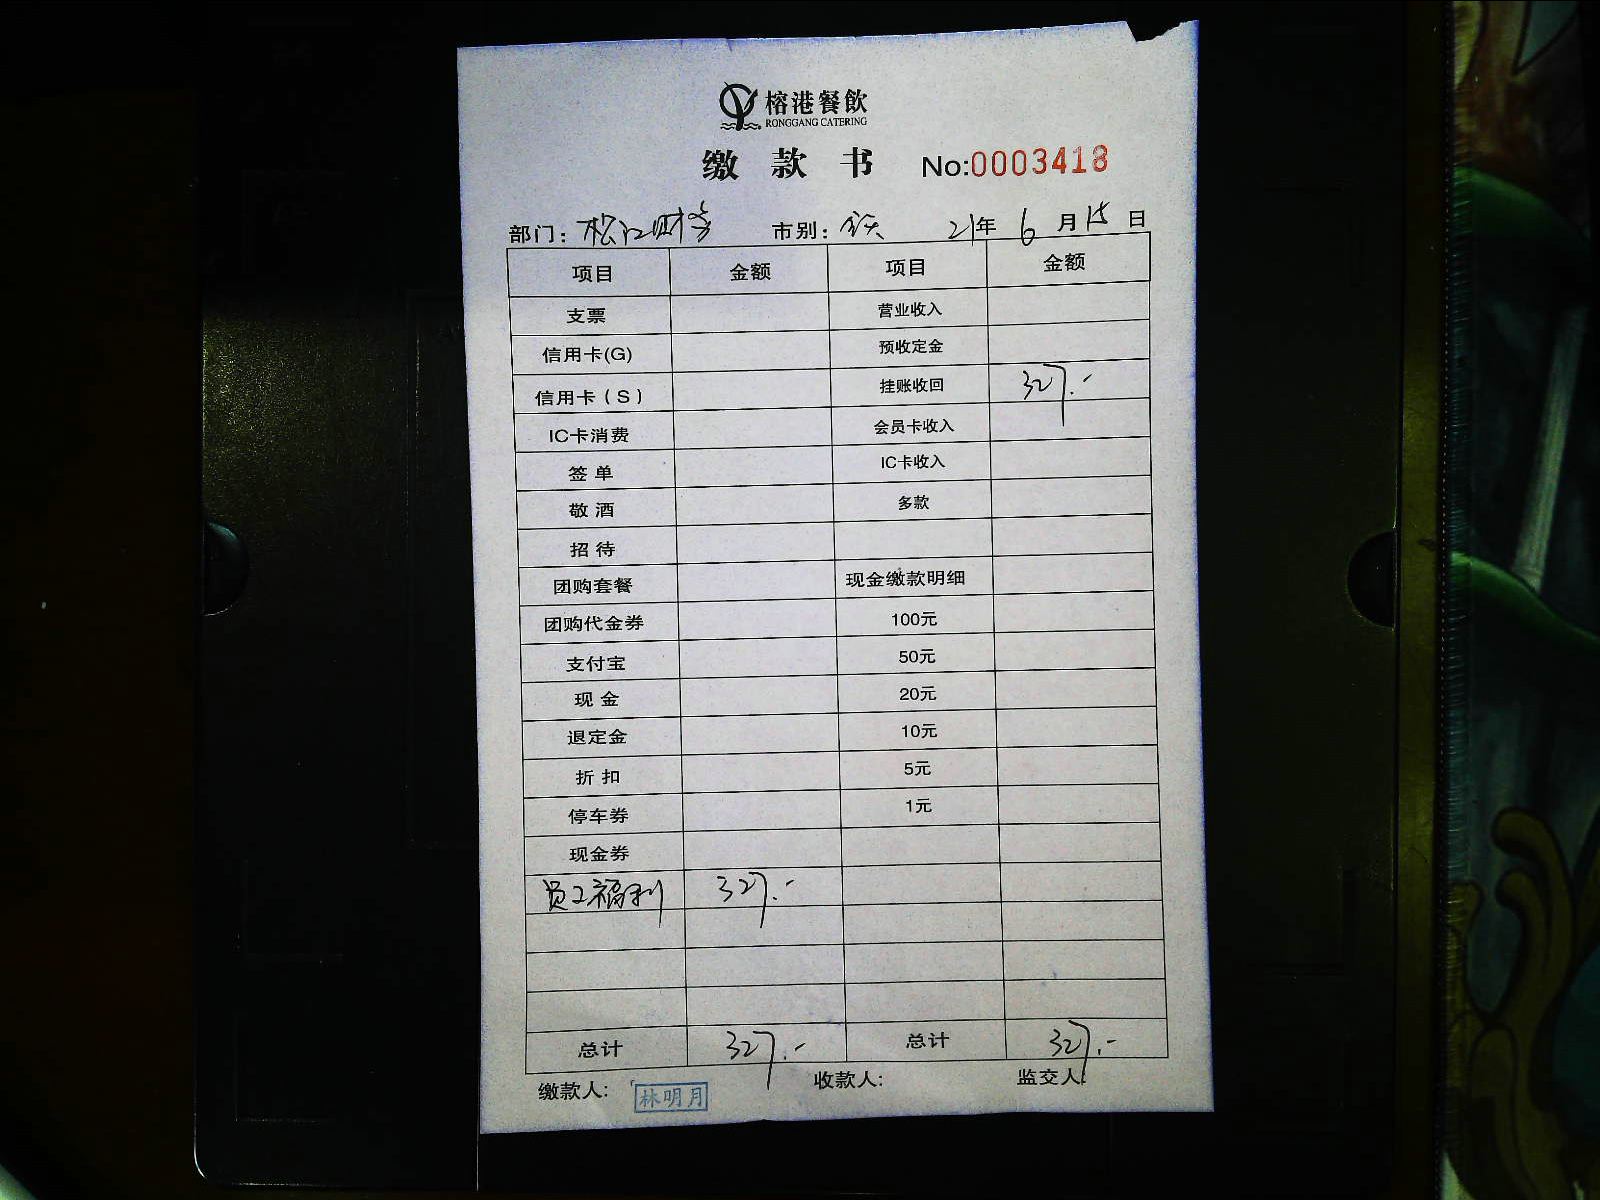 榕港餐飲
RONGGANG CATERING
缴款书 No:0003418
部门：松江财务 市别：全天 21年 6月15日
项目 金额 项目 金额
支票 营业收入
信用卡(G) 预收定金
信用卡（S） 挂账收回 327.-
IC卡消费 会员卡收入
签单 IC卡收入
敬酒 多款
招待
团购套餐 现金缴款明细
团购代金券 100元
支付宝 50元
现金 20元
退定金 10元
折扣 5元
停车券 1元
现金券
员工福利 327.-
总计 327.- 总计 327.-
缴款人: 林明月 收款人: 监交人: